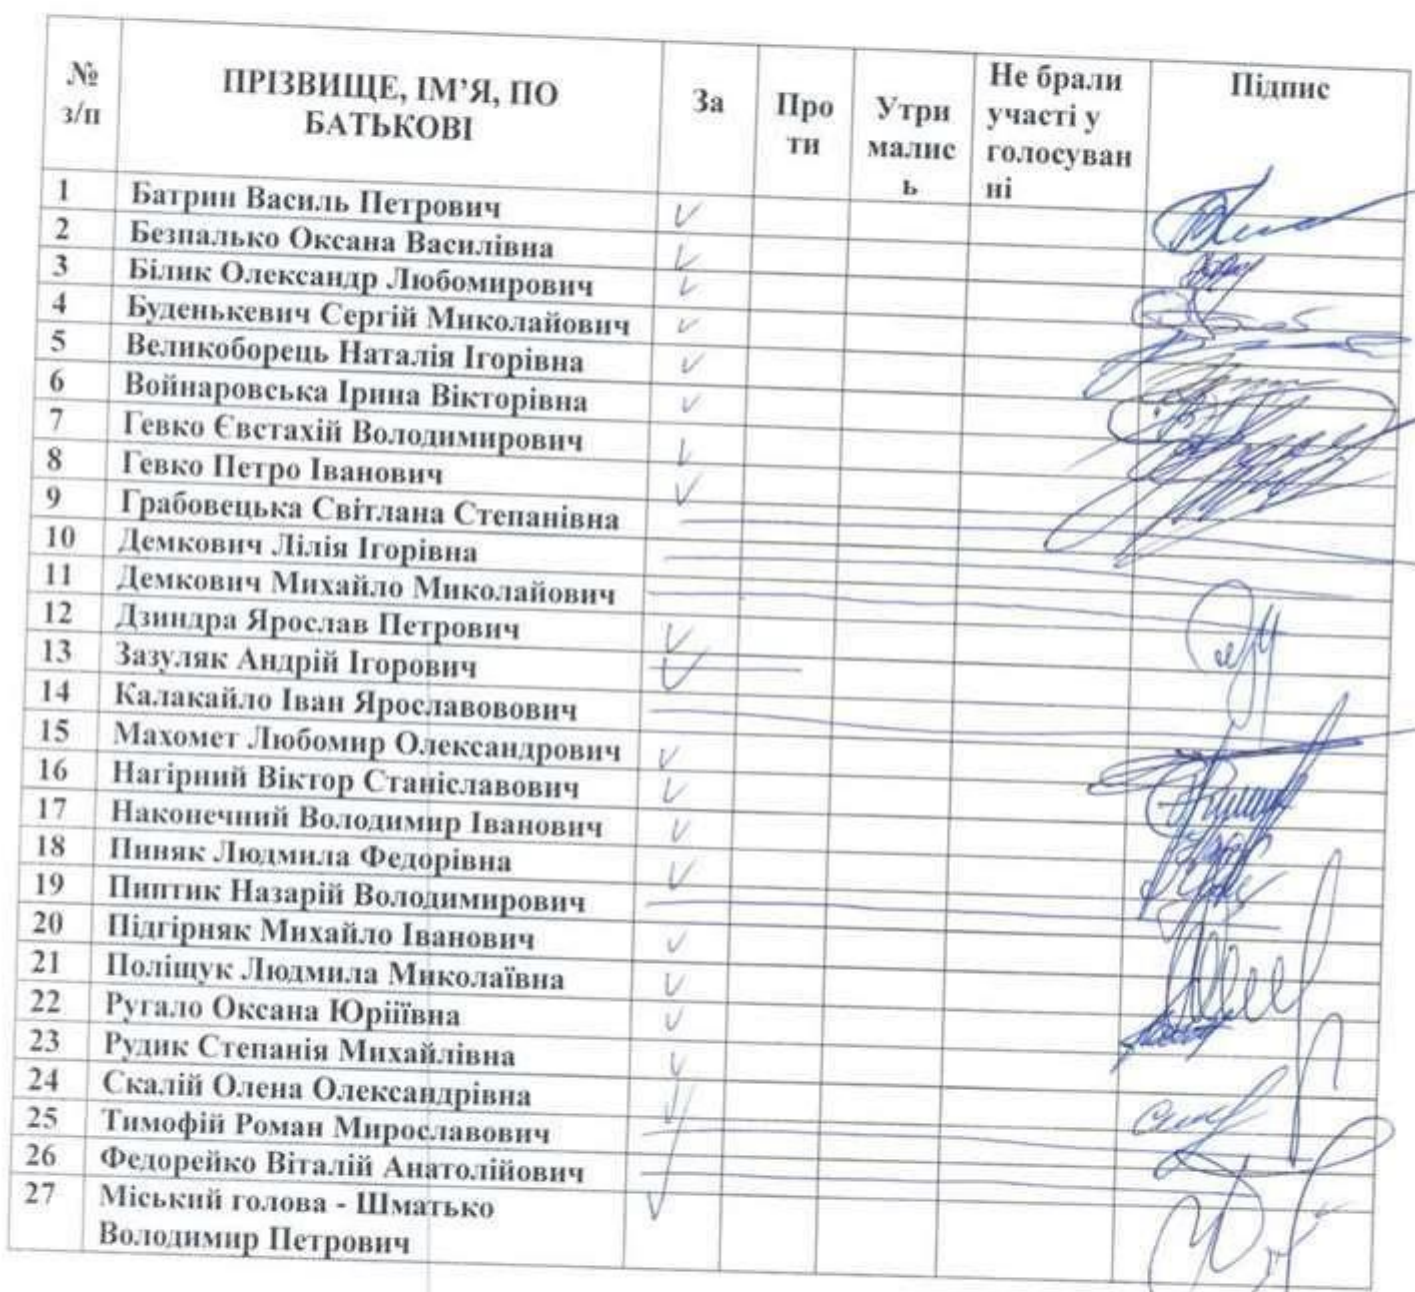 № з/п ПРІЗВИЩЕ, ІМ’Я, ПО БАТЬКОВІ За Про ти Утри малис ь Не брали участі у голосуван ні Підпис
1 Батрин Василь Петрович
2 Безпалько Оксана Василівна
3 Білик Олександр Любомирович
4 Буденькевич Сергій Миколайович
5 Великоборець Наталія Ігорівна
6 Войнаровська Ірина Вікторівна
7 Гевко Євстахій Володимирович
8 Гевко Петро Іванович
9 Грабовецька Світлана Степанівна
10 Демкович Лілія Ігорівна
11 Демкович Михайло Миколайович
12 Дзиндра Ярослав Петрович
13 Зазуляк Андрій Ігорович
14 Калакайло Іван Ярославовович
15 Махомет Любомир Олександрович
16 Нагірний Віктор Станіславович
17 Наконечний Володимир Іванович
18 Пиняк Людмила Федорівна
19 Пиптик Назарій Володимирович
20 Підгірняк Михайло Іванович
21 Поліщук Людмила Миколаївна
22 Ругало Оксана Юріїівна
23 Рудик Степанія Михайлівна
24 Скалій Олена Олександрівна
25 Тимофій Роман Мирославович
26 Федорейко Віталій Анатолійович
27 Міський голова - Шматько
Володимир Петрович